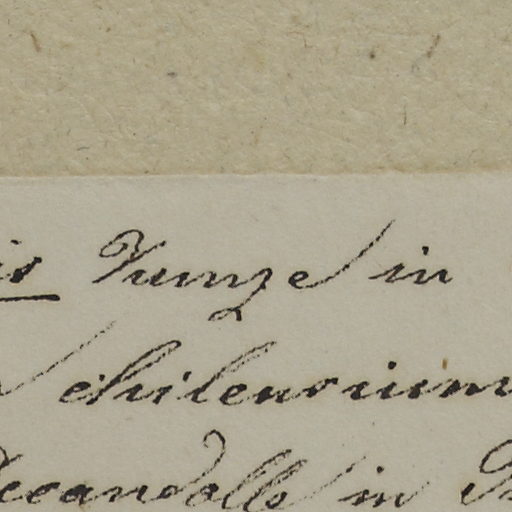 is Kunze in
chilensium
Decandolle in